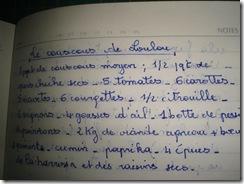 NOTES
Le couscous de Loulou
1 pqt de couscous moyen ; 1/2 pqt de
pois chiche secs - 5 tomates - 6 carottes
- 6 courgettes - 1/2 citrouille -
oignons - 4 gousses d'ail - 1 botte de
poivrons - 2 Kg de viande agneau
piments - cumin - paprika - 4 épices -
de la harissa et des raisins secs.